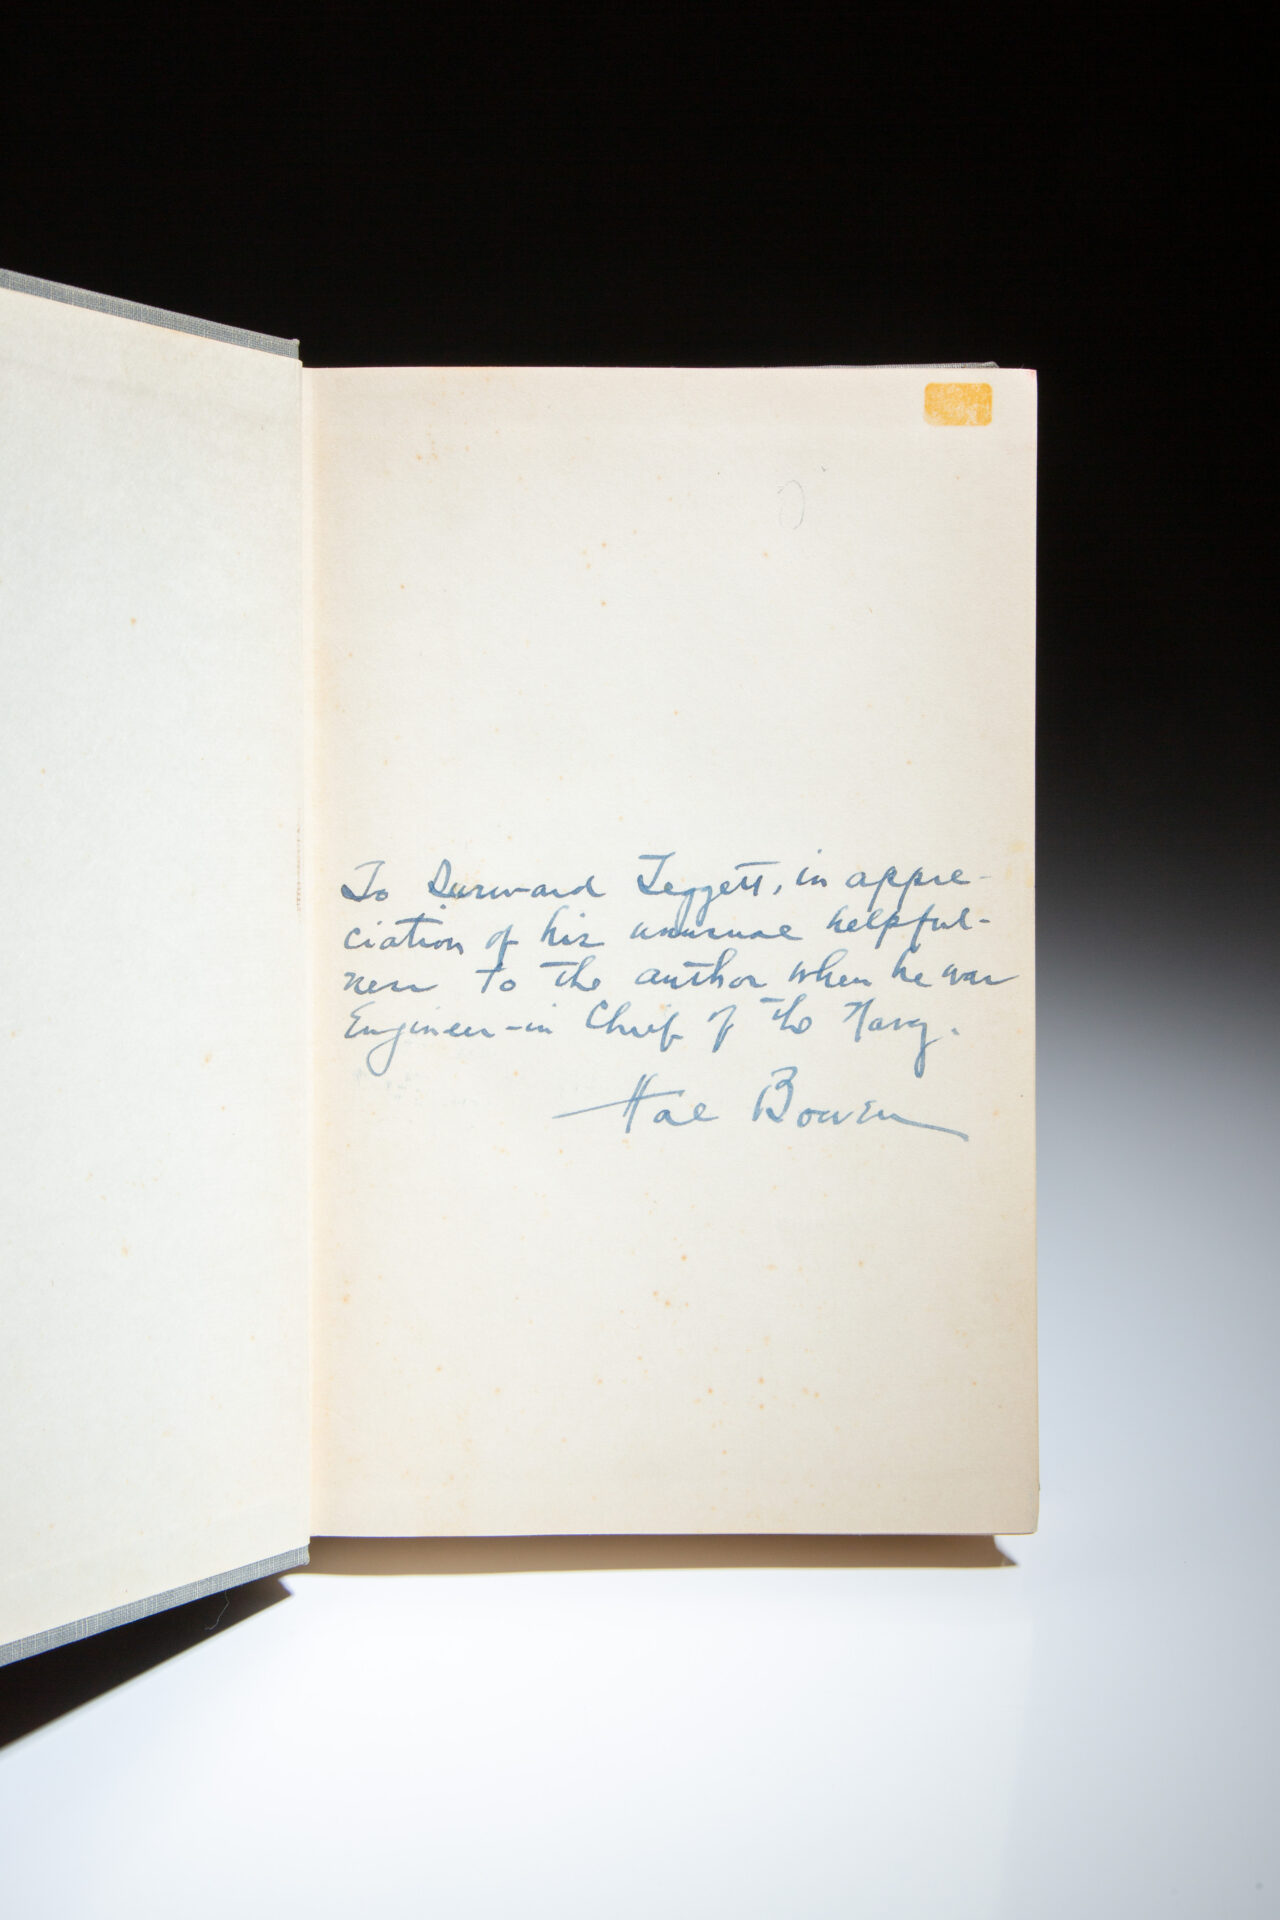 To Durward Leggett, in appre-
ciation of his unusual helpful-
ness to the author when he was
Engineer-in Chief of the Navy.
Hal Bowen